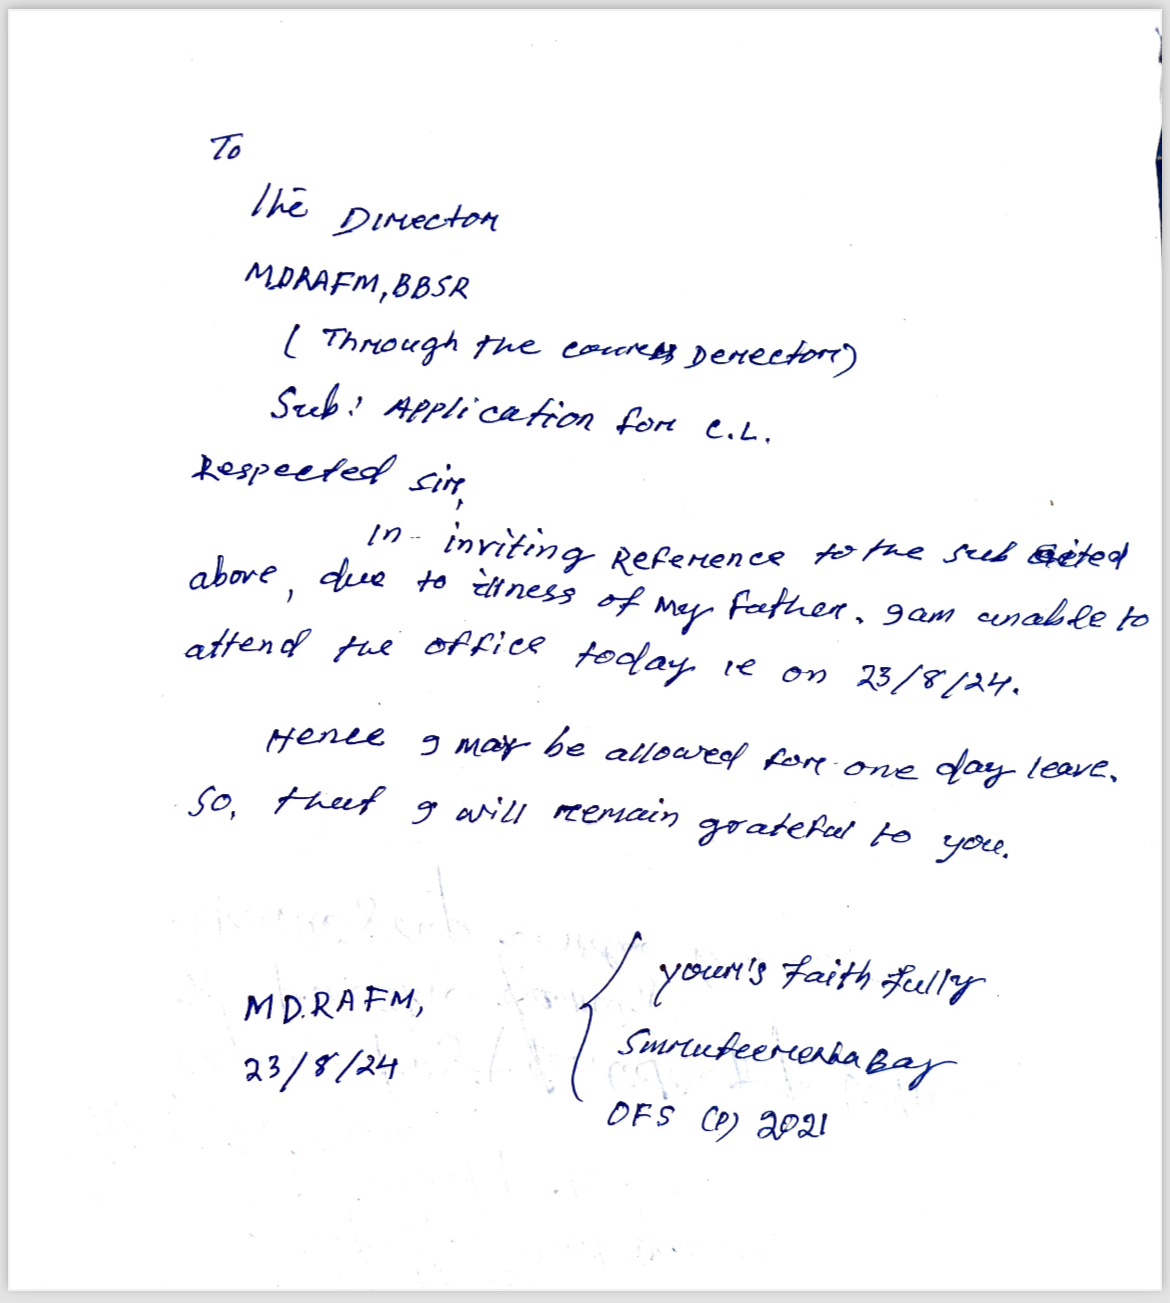 To
The Director
M.D.RAFM, BBSR
( Through the course Derector)
Sub: Application for C.L.
Respected sir,
In inviting Reference to the sub cited
above, due to illness of my father. I am unable to
attend the office today ie on 23/8/24.
Hence I may be allowed for one day leave.
So, that I will remain grateful to you.
your's faith fully
MD.RAFM,
23/8/24
OFS (P) 2021